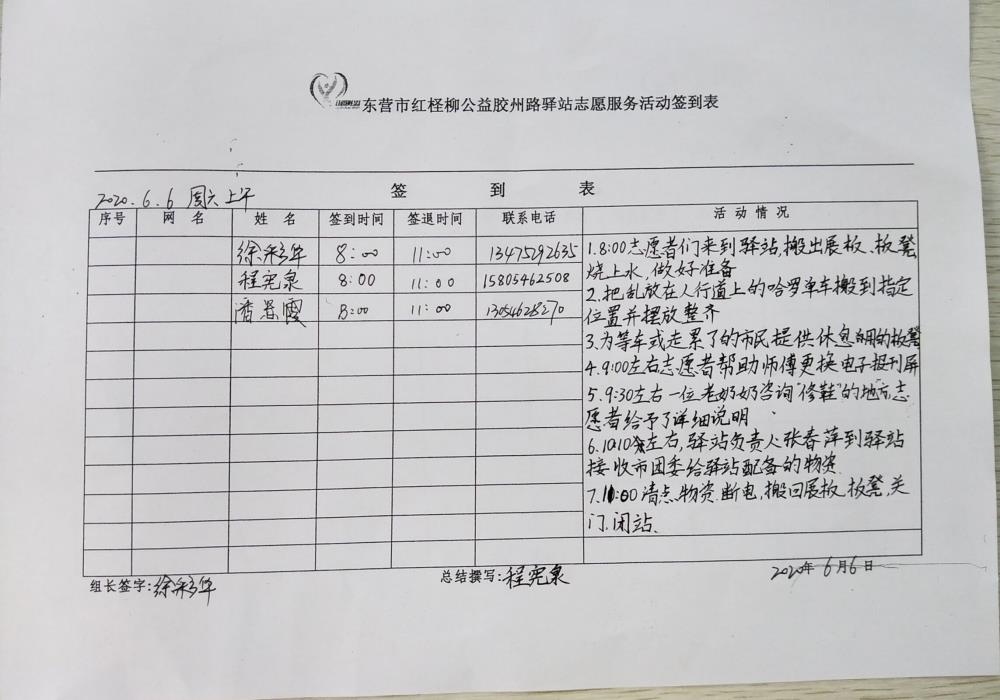 东营市红柽柳公益胶州路驿站志愿服务活动签到表
2020.6.6 周六上午
签 到 表
序号 网 名 姓 名 签到时间 签退时间 联系电话 活 动 情 况
徐彩华 8:00 11:00 13475292635
程宪泉 8:00 11:00 15805462508
潘景霞 8:00 11:00 13054628270
1.8:00志愿者们来到驿站,搬出展板、板凳
烧上水,做好准备
2.把乱放在人行道上的哈罗单车搬到指定
位置并摆放整齐
3.为等车或走累了的市民提供休息用的板凳
4.9:00左右志愿者帮助师傅更换电子报刊屏
5.9:30左右一位老奶奶咨询"修鞋"的地方志
愿者给予了详细说明
6.10:10左右,驿站负责人张春萍到驿站
接收市团委给驿站配备的物资
7.11:00清点物资.断电,搬回展板.板凳,关
门.闭站.
组长签字:徐彩华
总结撰写:程宪泉
2020年6月6日